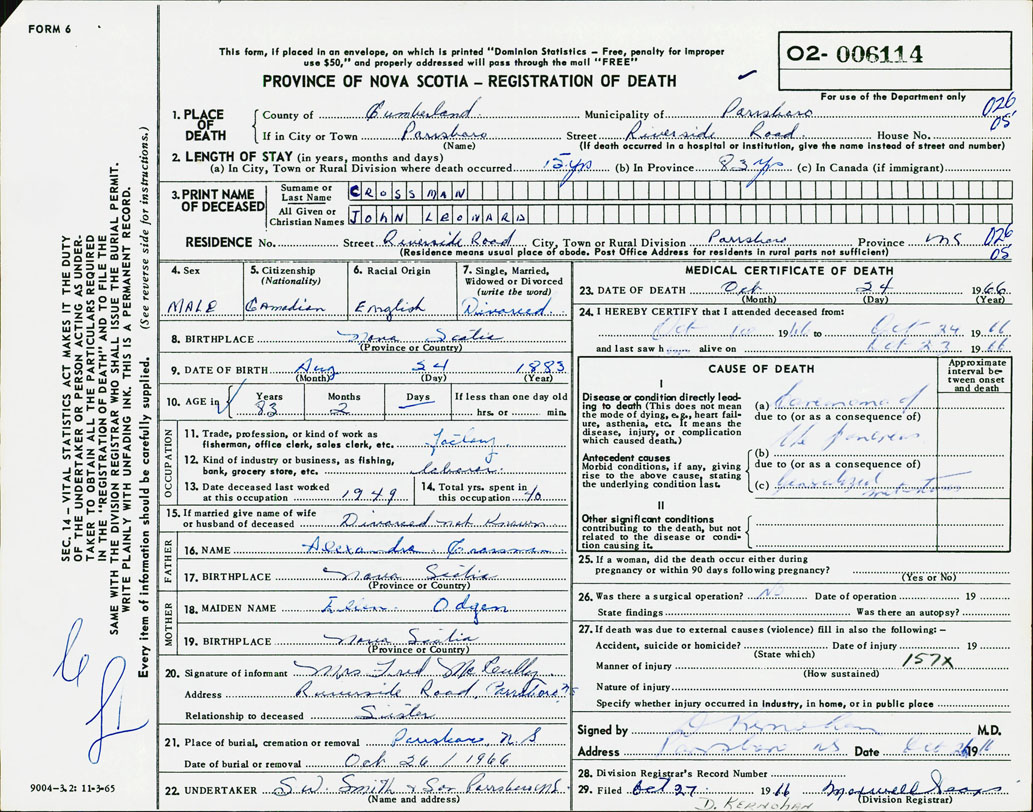 FORM 6
This form, if placed in an envelope, on which is printed "Dominion Statistics – Free, penalty for improper
use $50," and properly addressed will pass through the mail "FREE"
O2- 006114
For use of the Department only
PROVINCE OF NOVA SCOTIA – REGISTRATION OF DEATH
1. PLACE OF DEATH County of Cumberland Municipality of Parrsboro 026
If in City or Town Parrsboro Street Riverside Road House No. 05
(Name) (If death occurred in a hospital or institution, give the name instead of street and number)
2. LENGTH OF STAY (in years, months and days)
(a) In City, Town or Rural Division where death occurred 15 yrs (b) In Province 83 yrs (c) In Canada (if immigrant)
3. PRINT NAME OF DECEASED Surname or Last Name CROSSMAN
All Given or Christian Names JOHN LEONARD
RESIDENCE No. Street Riverside Road City, Town or Rural Division Parrsboro Province NS 026
(Residence means usual place of abode. Post Office Address for residents in rural parts not sufficient) 05
4. Sex 5. Citizenship (Nationality) 6. Racial Origin 7. Single, Married, Widowed or Divorced (write the word)
MALE Canadian English Divorced
8. BIRTHPLACE Nova Scotia
(Province or Country)
9. DATE OF BIRTH Aug 24 1883
(Month) (Day) (Year)
10. AGE in Years Months Days If less than one day old
83 2 hrs. or min.
OCCUPATION
11. Trade, profession, or kind of work as fisherman, office clerk, sales clerk, etc. factory
12. Kind of industry or business, as fishing, bank, grocery store, etc. laborer
13. Date deceased last worked at this occupation 1949 14. Total yrs. spent in this occupation 40
15. If married give name of wife or husband of deceased Divorced not Known
FATHER
16. NAME Crossman
17. BIRTHPLACE Nova Scotia
(Province or Country)
MOTHER
18. MAIDEN NAME Odgen
19. BIRTHPLACE Nova Scotia
(Province or Country)
20. Signature of informant Mrs Fred McCully
Address Riverside Road, Parrsboro NS
Relationship to deceased Sister
21. Place of burial, cremation or removal Parrsboro N S
Date of burial or removal Oct 26/1966
22. UNDERTAKER S.W. Smith & Son Parrsboro NS
(Name and address)
MEDICAL CERTIFICATE OF DEATH
23. DATE OF DEATH Oct 24 1966
(Month) (Day) (Year)
24. I HEREBY CERTIFY that I attended deceased from:
Oct 1966 to Oct 24 1966
and last saw h alive on Oct 23 1966
CAUSE OF DEATH
Approximate interval between onset and death
I
Disease or condition directly leading to death (This does not mean the mode of dying, e.g., heart failure, asthenia, etc. It means the disease, injury, or complication which caused death.)
(a) Carcinoma of
due to (or as a consequence of)
the pancreas
Antecedent causes
Morbid conditions, if any, giving rise to the above cause, stating the underlying condition last.
(b)
due to (or as a consequence of)
(c) Generalized
II
Other significant conditions
contributing to the death, but not related to the disease or condition causing it.
25. If a woman, did the death occur either during
pregnancy or within 90 days following pregnancy?
(Yes or No)
26. Was there a surgical operation? No Date of operation 19
State findings Was there an autopsy?
27. If death was due to external causes (violence) fill in also the following: –
Accident, suicide or homicide? Date of injury 19
(State which)
Manner of injury 157X
(How sustained)
Nature of injury
Specify whether injury occurred in industry, in home, or in public place
Signed by D Kernohan M.D.
Address Parrsboro NS Date Oct 26 1966
28. Division Registrar's Record Number
29. Filed Oct 27 1966 Maxwell
(Division Registrar)
D. KERNOHAN
SEC. 14 – VITAL STATISTICS ACT MAKES IT THE DUTY
OF THE UNDERTAKER OR PERSON ACTING AS UNDER-
TAKER TO OBTAIN ALL THE PARTICULARS REQUIRED
IN THE "REGISTRATION OF DEATH" AND TO FILE THE
SAME WITH THE DIVISION REGISTRAR WHO SHALL ISSUE THE BURIAL PERMIT.
WRITE PLAINLY WITH UNFADING INK. THIS IS A PERMANENT RECORD.
Every item of information should be carefully supplied. (See reverse side for instructions.)
9004-3.2: 11-3-65